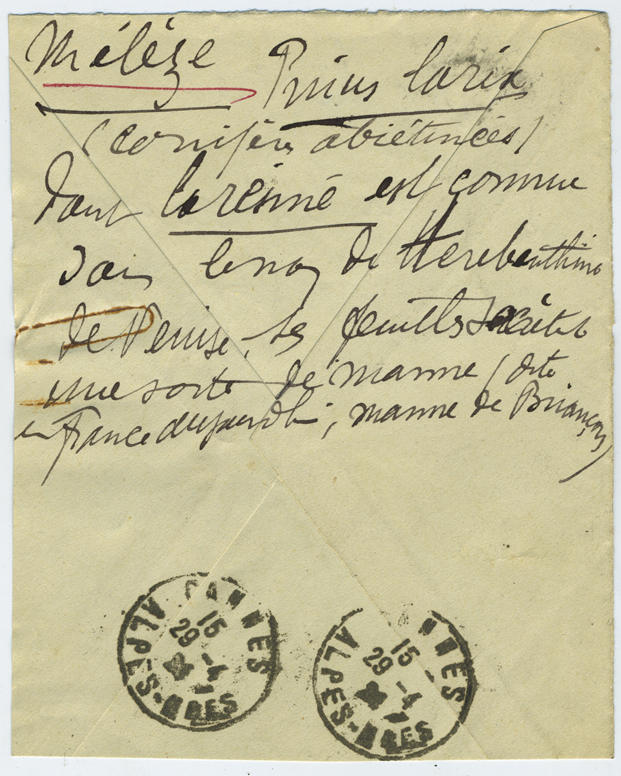 Mélèze Pinus larix
(conifères abiétinées)
dont la résine est connue
dans le nom de therebenthine
de Venise, les feuilles
une sorte de manne (dite
en France aujourd'hui, manne de Briançon)
CANNES
15
29-4
ALPES-MMES
NNES
15
29-4
ALPES-MMES